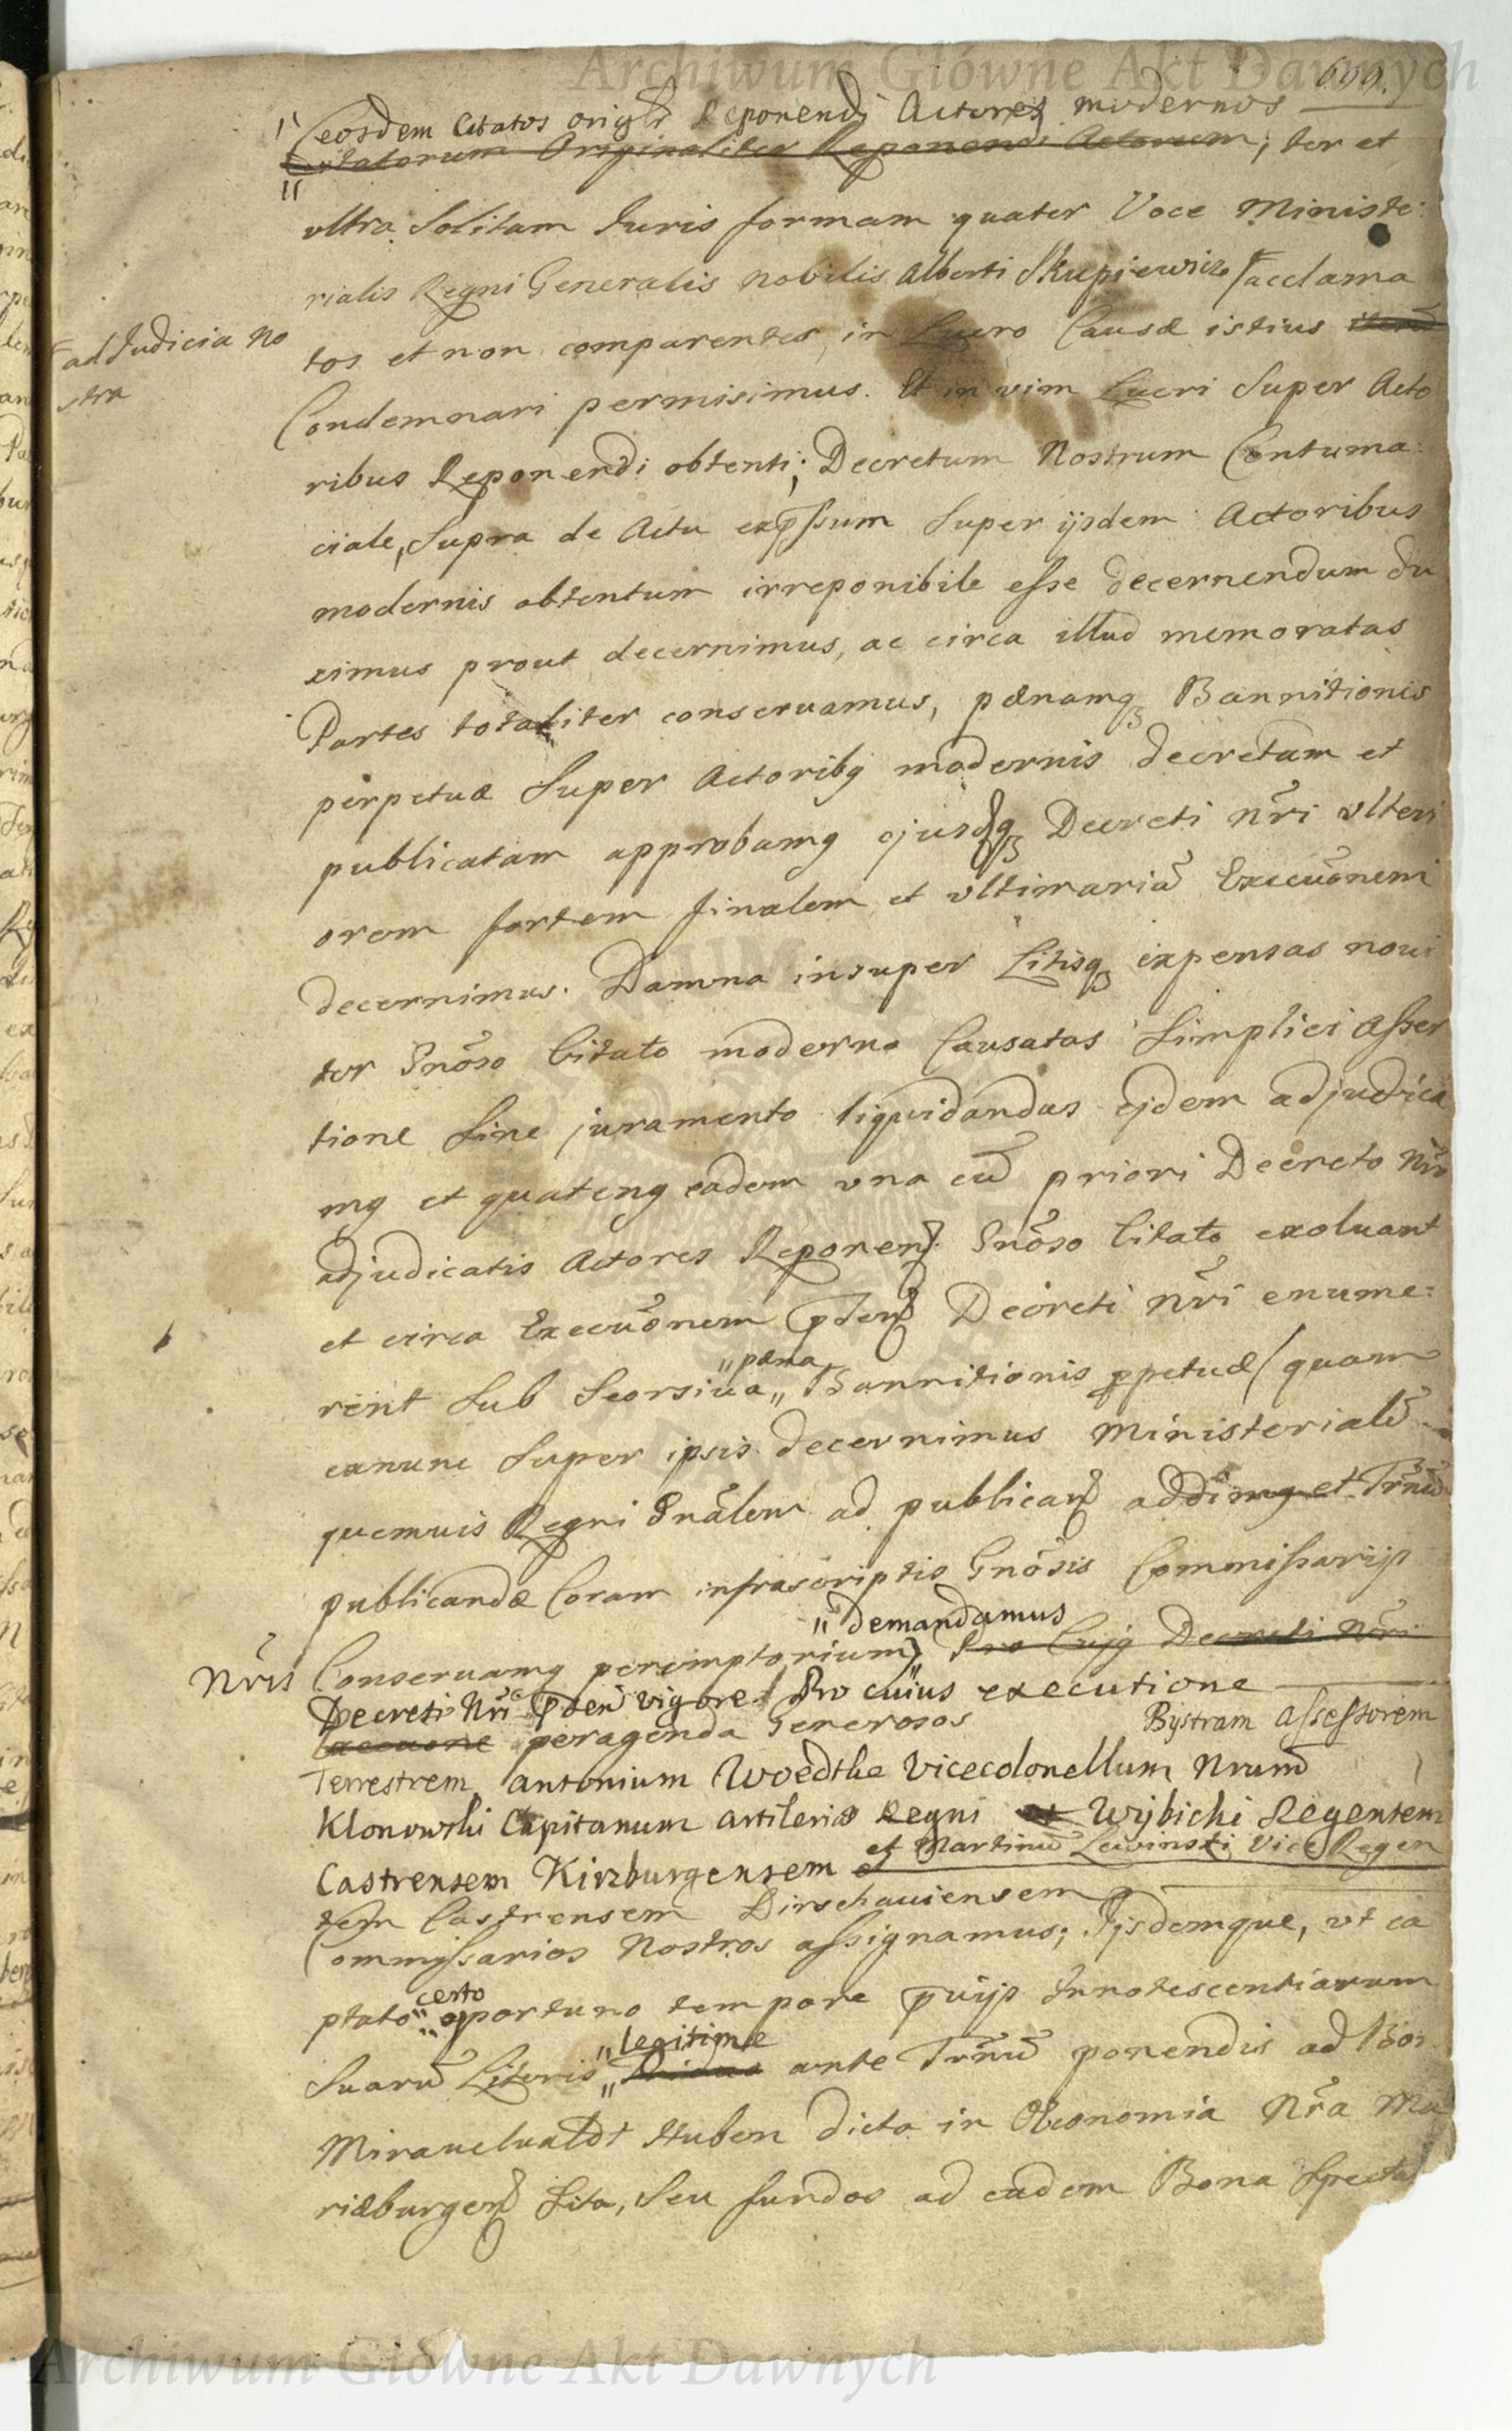 Archiwum Główne Akt Dawnych
609.
"eosdem Citatos origlr Reponendi Actores modernos
Citatorum Originaliter Reponendi Actorum; ter et
ultra Solitam Juris formam quater Voce Ministe:
rialis Regni Generalis nobilis Alberti Skupiewicz acclama
ad Judicia No
stra
tos et non comparentes, in Lucro Causæ istius
Condemnari permisimus. Et in vim Lucri Super Acto
ribus Reponendi obtenti; Decretum Nostrum Contuma:
ciale, Supra de Actu expssum Super ijsdem Actoribus
modernis obtentum irreponibile esse decernendum du
ximus prout decernimus, ac circa illud memoratas
Partes totaliter conservamus, pænamq3 Bannitionis
perpetuæ Super Actoribq modernis decretam et
publicatam approbamq ejusdq3 Decreti nri ulteri
orem fortem finalem et ultimariã Execuõnem
decernimus. Damna insuper Litisq3 expensas novi
ter Gnõso Citato moderno Causatas Simplici Asser
tione Sine juramento liquidandas ejdem adjudica
mq et quatenq eadem una cũ priori Decreto nro
adjudicatis Actores Reponen Gnõso Citato exoluant
et circa Execuõnem pnten Decreti nri enume:
rent Sub Seorsiua "pæna" Bannitionis ppetuæ (quam
exnunc Super ipsis decernimus Ministerialẽ
quemuis Regni Gnãlem ad publican addimq et Trnũ
publicandæ Coram infrascriptis Gnõsis Commissarijs
nris Conseruamq peremptorium) "demandamus Pro Cujq Decreti Nri
Decreti Nri pnten vigore Pro cuius executione
Execuone peragenda Generosos Bystram Assessorem
Terrestrem, Antonium Woedtke Vicecolonellum Nrum
Klonowski Capitanum Artileriæ Regni et Wijbicki Regentem
Castrensem Kirzburgensem et Martinũ Lewinski Vice Regen
tem Castrensem Dirschauiensem
Commissarios Nostros assignamus; Ijsdemque, ut ca
ptato "certo" oportuno tempore pvijs Innotescentiarum
Suarũ Literis "legitime ante Trnũ ponendis ad Bon
Mirauelualdt Huben dicta in Oeconomia Nra Ma
riæburgen Sita, Seu fundos ad eadem Bona Specta
Archiwum Główne Akt Dawnych